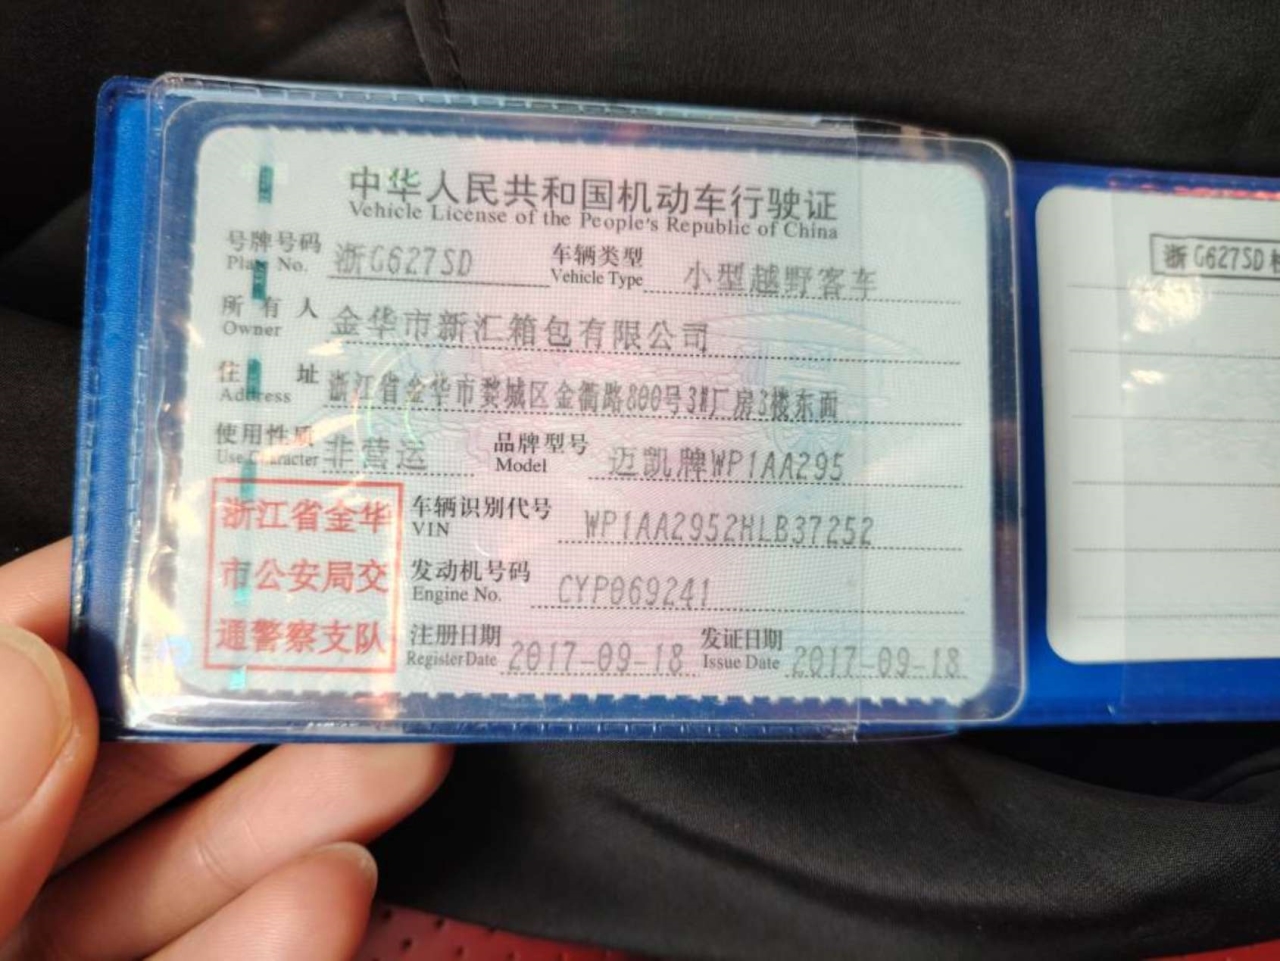 中华人民共和国机动车行驶证
Vehicle License of the People's Republic of China
号牌号码 浙G627SD 车辆类型 小型越野客车
Plate No. Vehicle Type
所有人 金华市新汇箱包有限公司
Owner
住址 浙江省金华市婺城区金衢路800号3#厂房3楼东面
Address
使用性质 非营运 品牌型号 迈凯牌WP1AA295
Use Character Model
浙江省金华
市公安局交
通警察支队
车辆识别代号 WP1AA2952HLB37252
VIN
发动机号码 CYP069241
Engine No.
注册日期 2017-09-18 发证日期 2017-09-18
Register Date Issue Date
浙G627SD